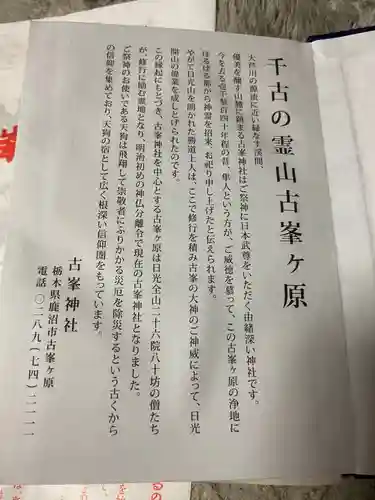 千古の霊山古峯ヶ原
大芦川の源流に近い緑なす渓間、
優美を醸す山麓に鎮まる古峯神社はご祭神に日本武尊をいただく由緒深い神社です。
今を去る壱千参百四十年程の昔、隼人という方が、ご威徳を慕って、この古峯ヶ原の浄地に
はるばる都から神霊を招来、お祀り申し上げたと伝えられます。
やがて日光山を開かれた勝道上人は、ここで修行を積み古峯の大神のご神威によって、日光
開山の偉業を成しとげられたのです。
この縁起にもとづき、古峯神社を中心とする古峯ヶ原は日光全山二十六院八十坊の僧たち
が、修行に励む霊地となり、明治初めの神仏分離令で現在の古峯神社となりました。
ご祭神のお使いである天狗は飛翔して崇敬者にふりかかる災厄を除災するという古くから
の信仰を集めており、天狗の宿として広く根深い信仰圏をもっています。
古峯神社
栃木県鹿沼市古峯ヶ原
電話 〇二八九(七四)二一一一